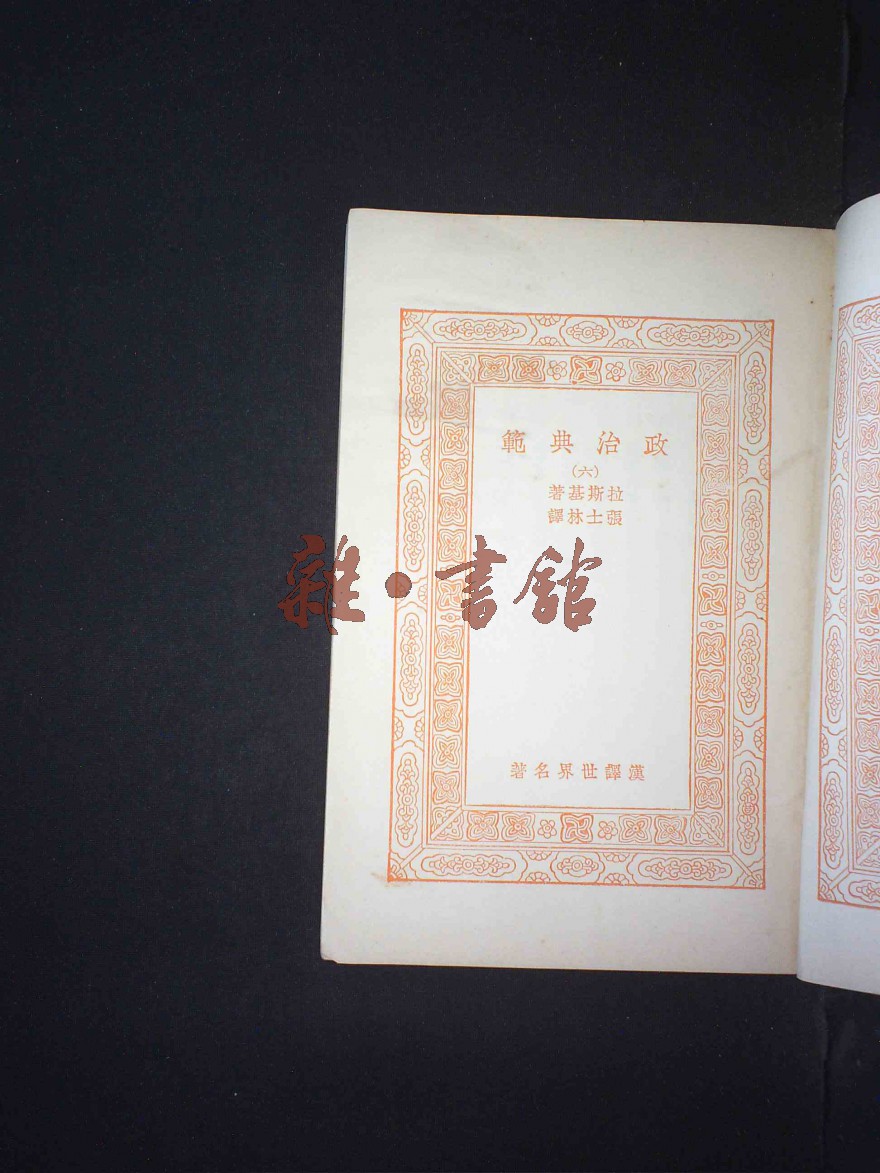 政治典範
(六)
拉斯基著
張士林譯
雜·書館
漢譯世界名著